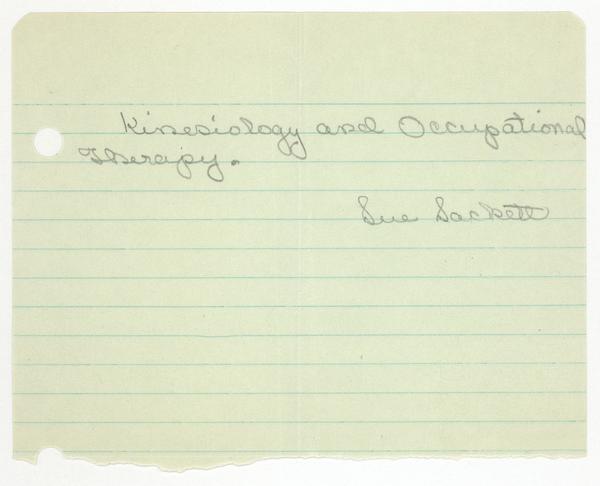 Kinesiology and Occupational
Therapy.
Sue Sackett